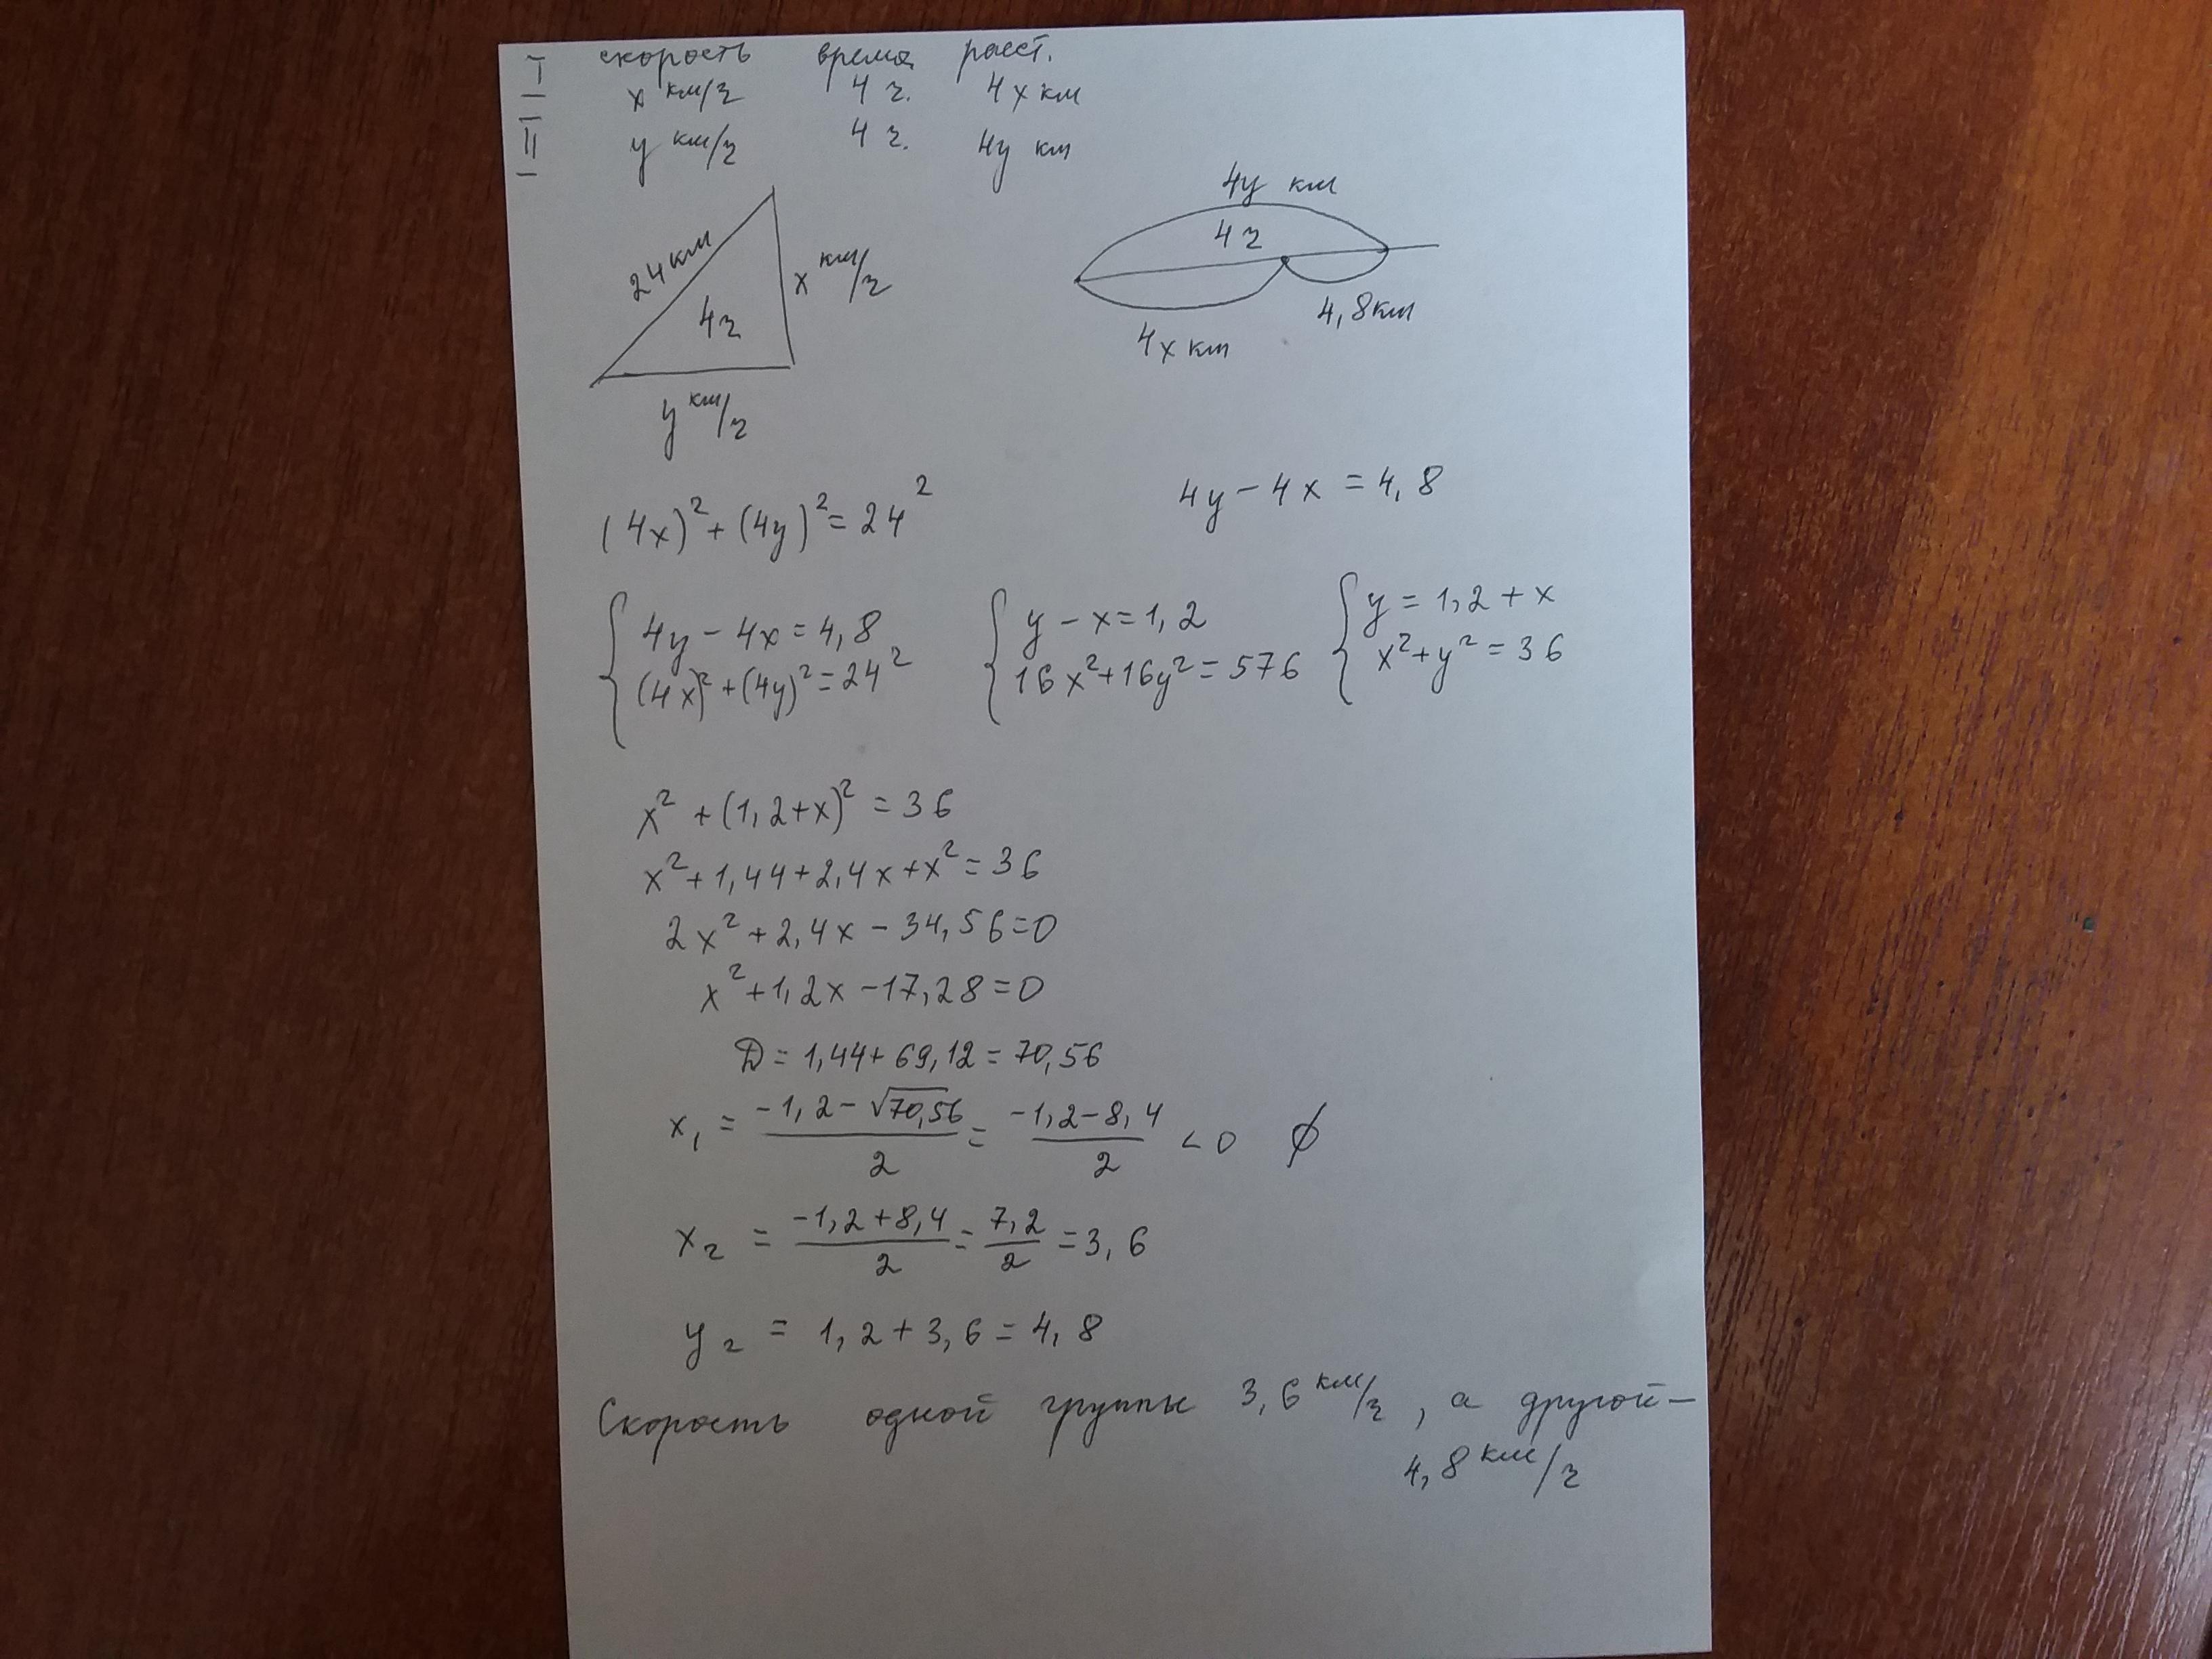 скорость время расст.
I x км/ч 4 ч. 4x км
II y км/ч 4 ч. 4y км
24 км
4ч
x км/ч
y км/ч
4y км
4ч
4,8км
4x км
(4x)² + (4y)² = 24²
4y - 4x = 4,8
{ 4y - 4x = 4,8 { y - x = 1,2 { y = 1,2 + x
(4x)² + (4y)² = 24² 16x² + 16y² = 576 x² + y² = 36
x² + (1,2 + x)² = 36
x² + 1,44 + 2,4x + x² = 36
2x² + 2,4x - 34,56 = 0
x² + 1,2x - 17,28 = 0
D = 1,44 + 69,12 = 70,56
x₁ = (-1,2 - √70,56)/2 = (-1,2 - 8,4)/2 < 0 ∅
x₂ = (-1,2 + 8,4)/2 = 7,2/2 = 3,6
y₂ = 1,2 + 3,6 = 4,8
Скорость одной группы 3,6 км/ч, а другой -
4,8 км/ч